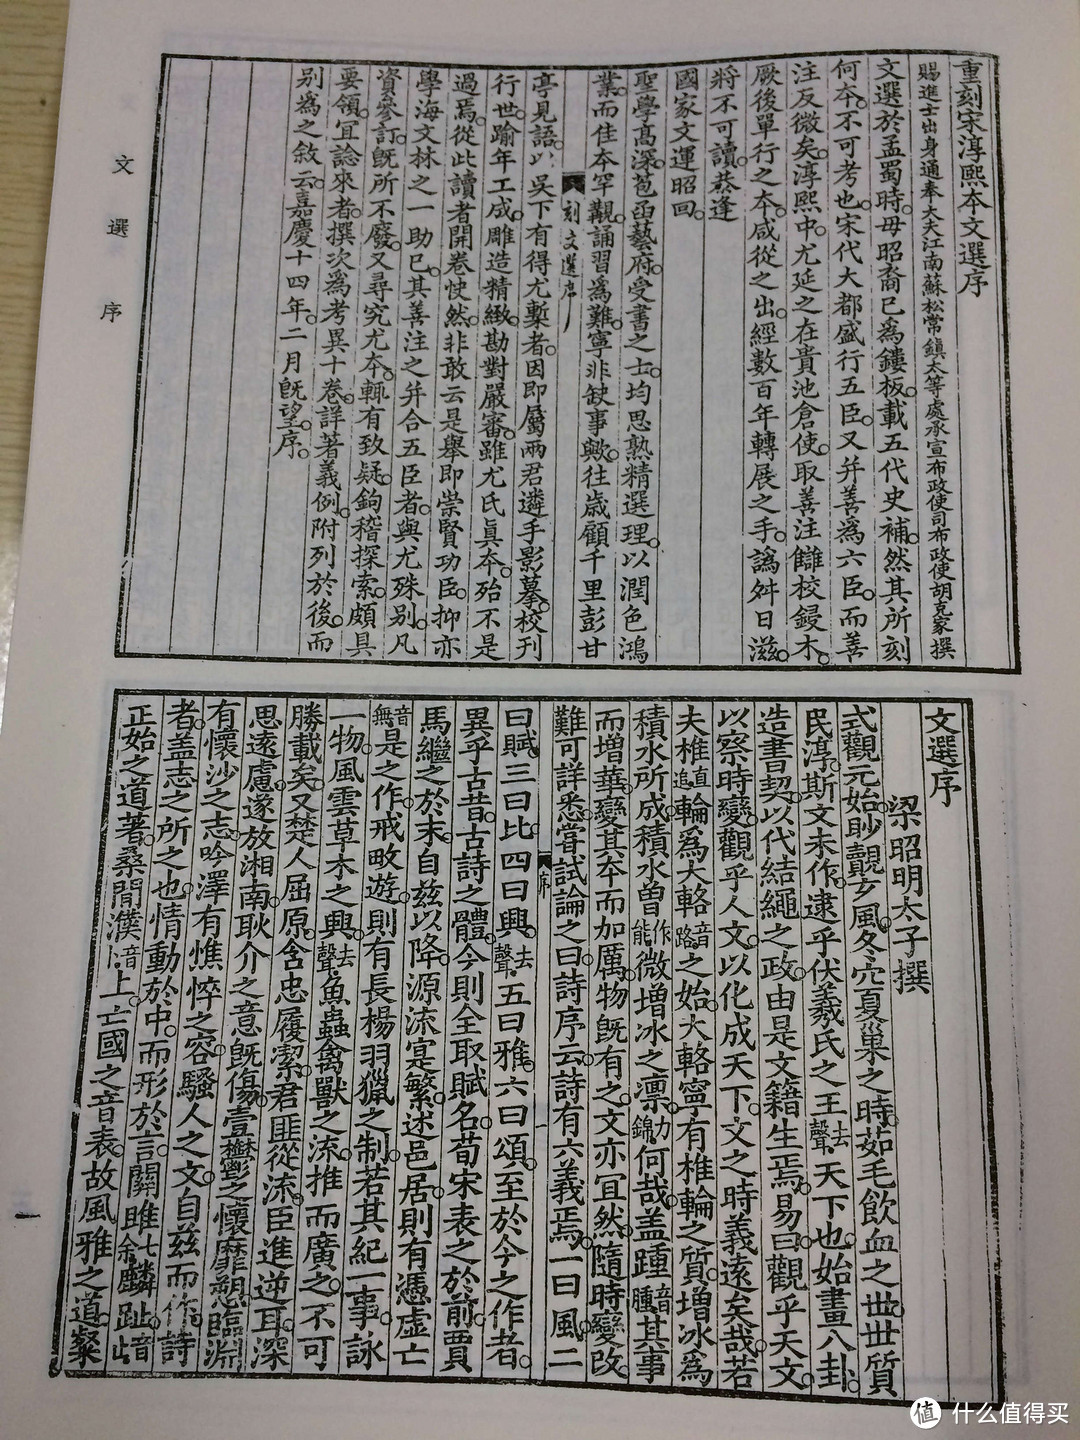 重刻宋淳熙本文選序
賜進士出身通奉大夫江南蘇松常鎮太等處承宣布政使司布政使胡克家撰
文選於孟蜀時毋昭裔已為鏤板載五代史補。然其所刻
何本。不可考也。宋代大都盛行五臣。又并善為六臣。而善
注反微矣。淳熙中。尤延之在貴池倉使。取善注讎校鋟木。
厥後單行之本。咸從之出。經數百年轉展之手。譌舛日滋。
將不可讀。恭逢
國家文運昭回。
聖學高深。苞函藝府。受書之士。均思熟精選理。以潤色鴻
業。而佳本罕覯。誦習為難。寧非缺事歟。往歲顧千里彭甘
刻文選序
亭見語。以吳下有得尤槧者。因即屬兩君遴手影摹。校刊
行世。踰年工成。雕造精緻。勘對嚴審。雖尤氏真本。殆不是
過焉。從此讀者開卷快然。非敢云是舉即崇賢功臣。抑亦
學海文林之一助已。其善注之并合五臣者。與尤殊別。凡
資參訂。既所不廢。又尋究尤本。輒有致疑。鉤稽探索。頗具
要領。宜諗來者。撰次為考異十卷。詳著義例。附列於後。而
別為之敘云。嘉慶十四年二月既望序。
文選序
文選序
梁昭明太子撰
式觀元始。眇覿玄風。冬穴夏巢之時。茹毛飲血之世。世質
民淳。斯文未作。逮乎伏羲氏之王去聲天下也。始畫八卦。
造書契。以代結繩之政。由是文籍生焉。易曰。觀乎天文。
以察時變。觀乎人文。以化成天下。文之時義遠矣哉。若
夫椎直追輪為大輅音路之始。大輅寧有椎輪之質。增冰為
積水所成。積水曾作能微增冰之凛力錦。何哉。蓋踵音腫其事
而增華。變其本而加厲。物既有之。文亦宜然。隨時變改。
難可詳悉。嘗試論之曰。詩序云。詩有六義焉。一曰風。二
序
一
曰賦。三曰比。四曰興。去聲。五曰雅。六曰頌。至於今之作者。
異乎古昔。古詩之體。今則全取賦名。荀宋表之於前。賈
馬繼之於末。自茲以降。源流寔繁。述邑居。則有憑虛亡
音無是之作。戒畋遊。則有長楊羽獵之制。若其紀一事。詠
一物。風雲草木之興。去聲。魚蟲禽獸之流。推而廣之。不可
勝載矣。又楚人屈原。含忠履潔。君匪從流。臣進逆耳。深
思遠慮。遂放湘南。耿介之意既傷。壹鬱之懷靡愬。臨淵
有懷沙之志。吟澤有憔悴之容。騷人之文。自茲而作。詩
者。蓋志之所之也。情動於中。而形於言。關雎七余麟趾音止
正始之道著。桑間濮音卜上。亡國之音表。故風雅之道。粲
一
值 什么值得买